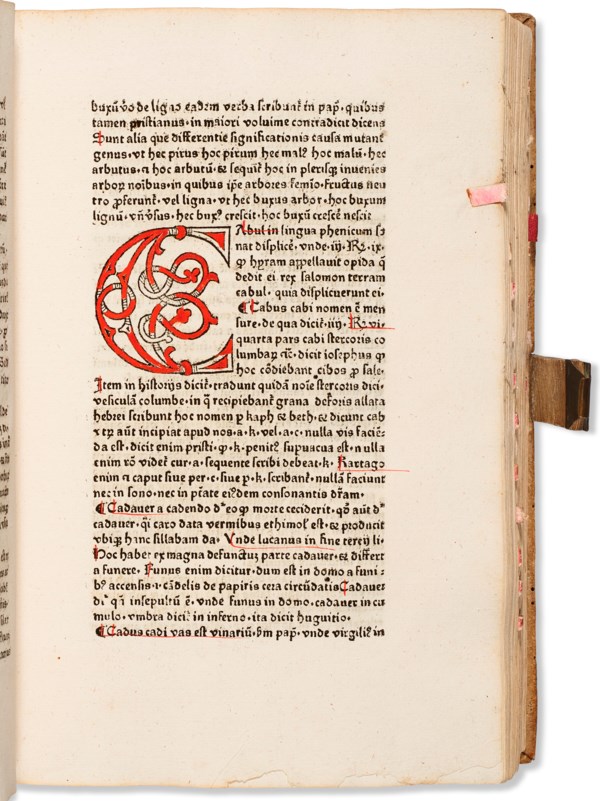 buxū v̄o de ligno eadem verba scribunt̄ in pap̄. quibus
tamen pristianus. in maiori volūine contradicit dicens
Sunt alia que differentie significationis causa mutant
genus. vt hec pirus hoc pirum hec mal⁹ hoc malū. hec
arbutus. ⁊ hoc arbutū. ⁊ sequit̄ hoc in plerisq; inuenies
arboꝝ noībus. in quibus ip̄e arbores femīo. fructus neu
tro ꝓferunt̄. vel ligna. vt hec buxus arbor. hoc buxum
lignū. vn̄ v̄sus. hec bux⁹ crescit. hoc buxū crescē nescit
CAbul in lingua phenicum so
nat displicē. vnde. iij. Re. ix.
ꝙ hyram appellauit opida q̄
dedit ei rex salomon terram
cabul. quia displicuerunt ei.
¶ Cabus cabi nomen ē men
sure. de qua dicit̄. iiij. Re. vi.
quarta pars cabi stercoris co
lumbaꝝ ⁊c̄. dicit iosephus ꝙ
hoc cōdiebant cibos ꝓ sale.
Item in historijs dicit̄. tradunt quidā noīe stercoris dici.
vesiculā columbe. in q̄ recipiebant̄ grana deforis allata
hebrei scribunt hoc nomen ꝑ kaph ⁊ beth. ⁊ dicunt cab
aut incipiat apud nos. a. k. vel. a. c. nulla vis faciē⸗
da est. dicit enim pristi. ꝙ. k. penit⁹ supuacua est. nulla
enim rō videt̄ cur. a. sequente scribi debeat. k. Kartago
enim ⁊ caput siue per. c. siue ꝑ. k. scribant̄. nullā faciunt
nec in sono. nec in ptāte eiꝰdem consonantis dr̄am.
¶ Cadauer a cadendo d̄ eo ꝙ morte ceciderit. qn̄ aūt d̄
cadauer. q̄i caro data vermibus ethimol̄ est. ⁊ producit
vbiqꝫ hanc sillabam da. Vnde lucanus in fine tercij li.
Hoc habet ex magna defunctus parte cadauer. ⁊ differt
a funere. Funus enim dicitur. dum est in domo a funi⸗
b⁹ accensis. a. cādelis de papiris cera circūdatis Cadauer
d̄. qn̄ insepultū ē. vnde funus in domo. cadauer in cu⸗
mulo. vmbra dicit̄ in inferno. ita dicit huguitio.
¶ Cadus cadi vas est vinariū. s̄m pap̄. vnde virgili⁹ in